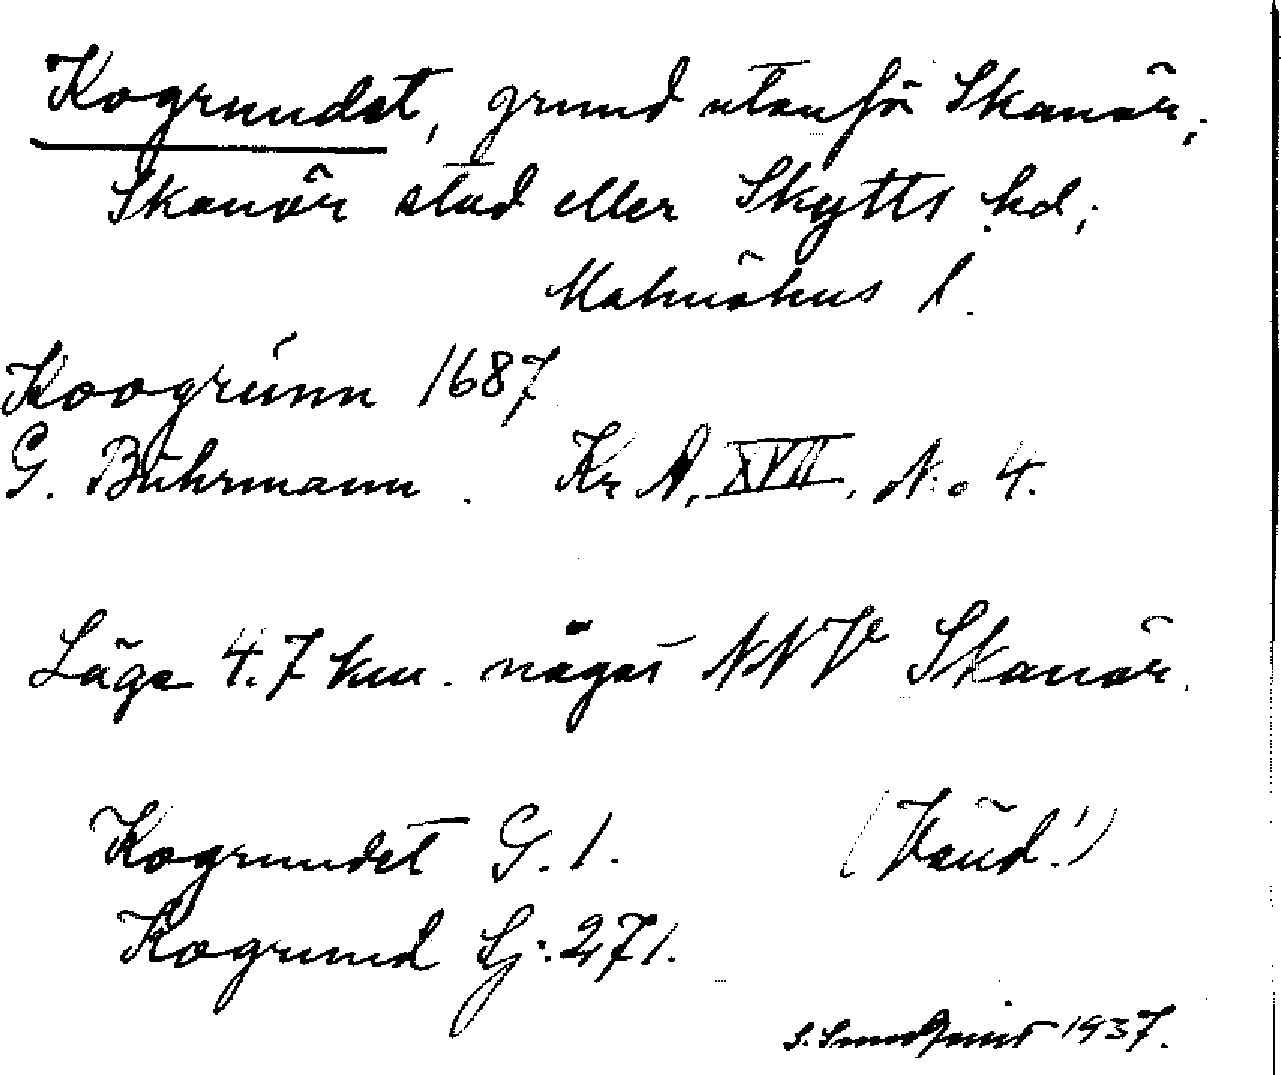 Kogrundet, grund utanför Skanör;
Skanör stad eller Skytts hd;
Malmöhus l.
Koogrünn 1687
G. Buhrmann. Kr A, XVII, N:o 4.
Läge 4.7 km. något NNV Skanör.
Kogrundet G. 1. (Vänd!)
Kogrund Sj: 271.
S. Sundquist 1937.